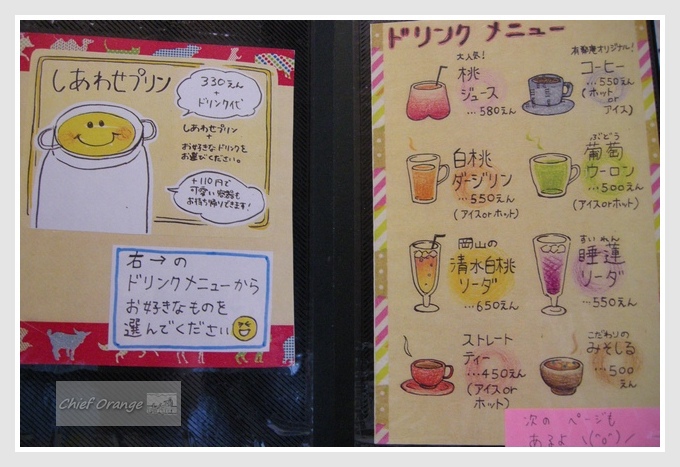 しあわせプリン
330えん
+
ドリンク代で
しあわせプリン
+
お好きなドリンクを
お選びください。
+110円で
可愛い容器も
お持ち帰りできます!
右→の
ドリンクメニューから
お好きなものを
選んでください
ドリンク メニュー
大人気!
桃
ジュース
…580えん
有鄰庵オリジナル!
コーヒー
…550えん
(ホット
or
アイス)
白桃
ダージリン
…550えん
(アイスorホット)
ぶどう
葡萄
ウーロン
…500えん
(アイスorホット)
岡山の
清水白桃
ソーダ
…650えん
すいれん
睡蓮
ソーダ
…550えん
ストレート
ティー
…450えん
(アイスor
ホット)
こだわりの
みそしる
…500
えん
次の ページも
あるよ
Chief Orange